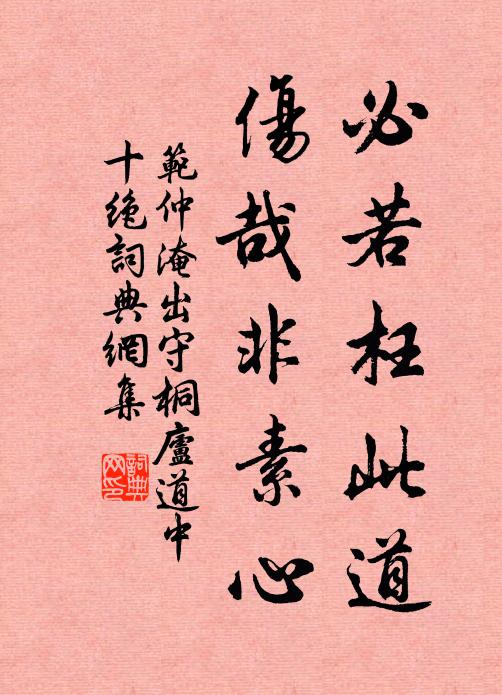 必若枉此道
傷哉非素心
範仲淹出守桐廬道中
十絶詞典網集
詞典
网印